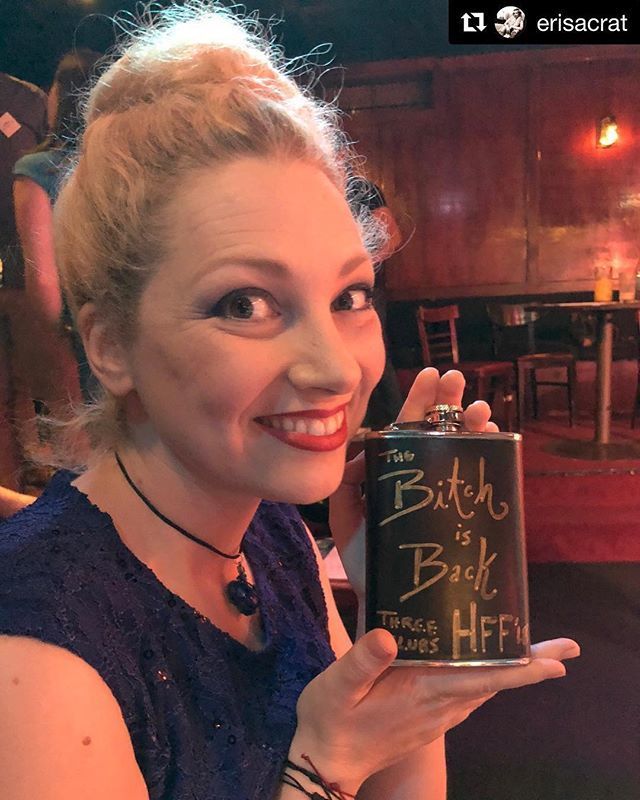 erisacrat
THE
Bitch
is
Back
THREE
CLUBS
HFF'18